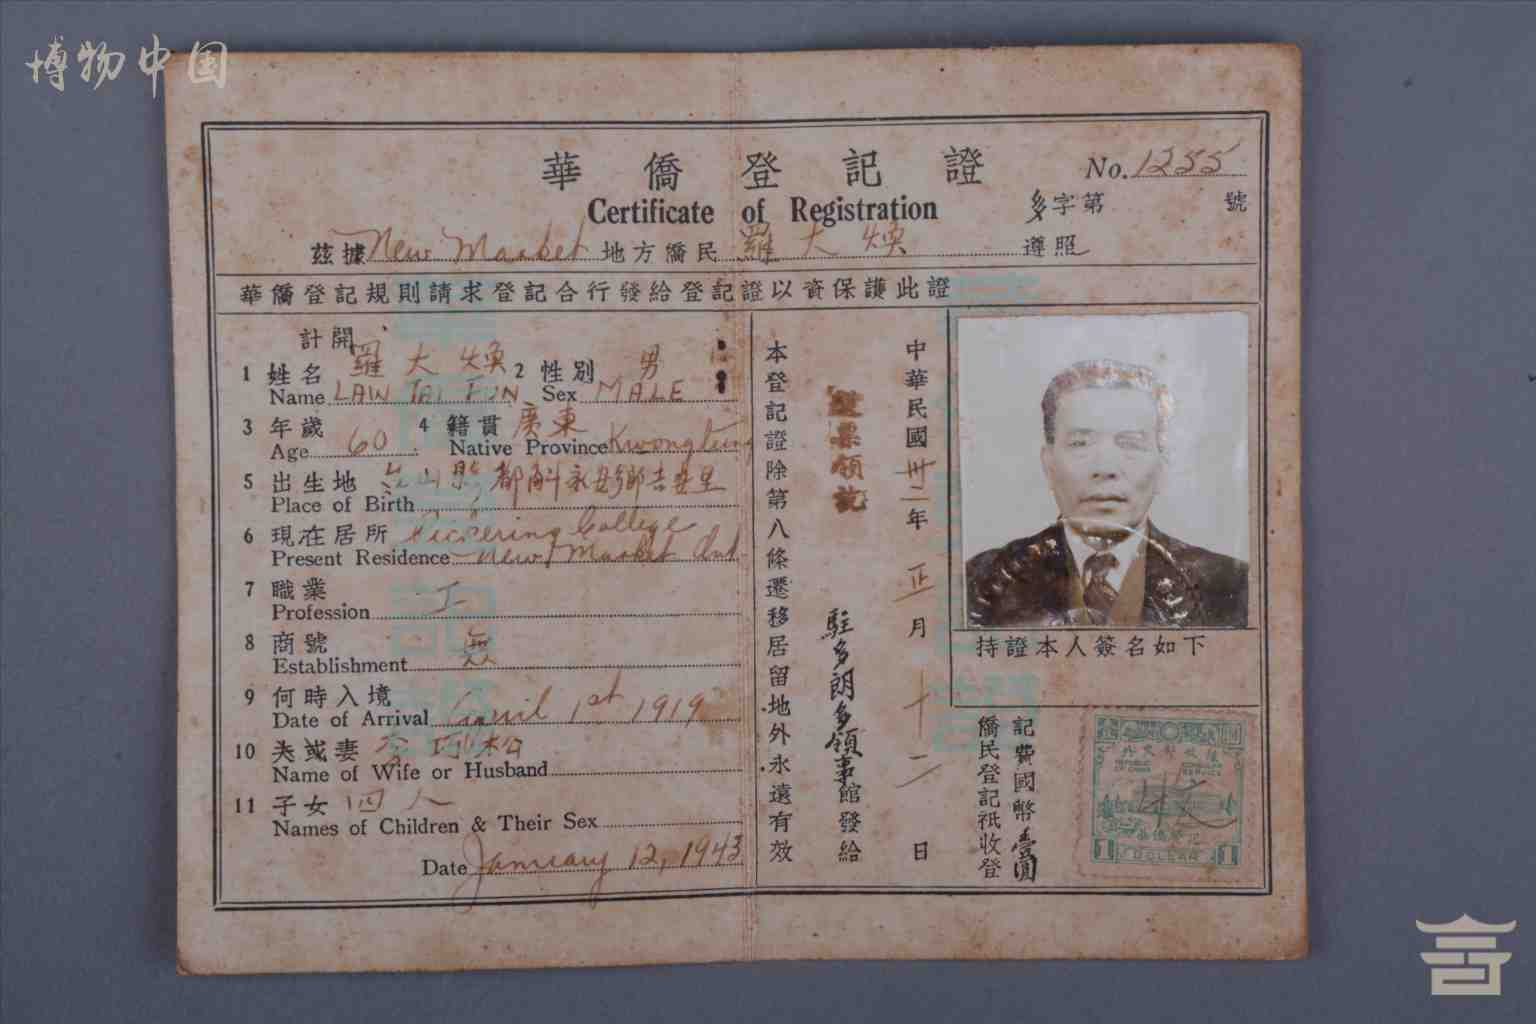 博物中国
華僑登記證
No. 1255
Certificate of Registration
多字第 號
茲據 New Market 地方僑民 羅大煥 遵照
華僑登記規則請求登記合行發給登記證以資保護此證
計開
1 姓名 羅大煥 2 性別 男
Name LAW TAI FUN Sex MALE
3 年歲 60 4 籍貫 廣東
Age Native Province Kwongtung
5 出生地 台山縣都斛永安鄉吉安里
Place of Birth
6 現在居所 Pickering College
Present Residence New Market Ont.
7 職業 工
Profession
8 商號 無
Establishment
9 何時入境
Date of Arrival April 1st 1919
10 夫或妻
Name of Wife or Husband
11 子女 四人
Names of Children & Their Sex
Date January 12, 1943
本登記證除第八條遷移居留地外永遠有效
駐多朗多領事館發給
中華民國卅二年正月十二日
持證本人簽名如下
僑民登記祇收登
記費國幣壹圓
REPUBLIC OF CHINA
CONSULAR SERVICE
1 DOLLAR 1